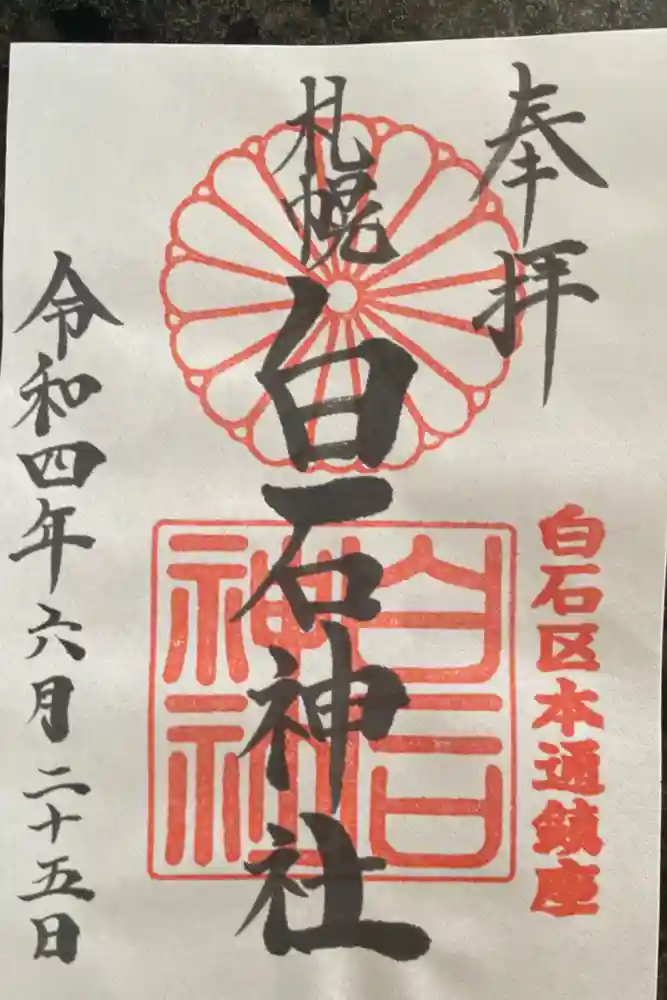 奉拝
白石区本通鎮座
札幌
白石神社
白石神社
令和四年六月二十五日